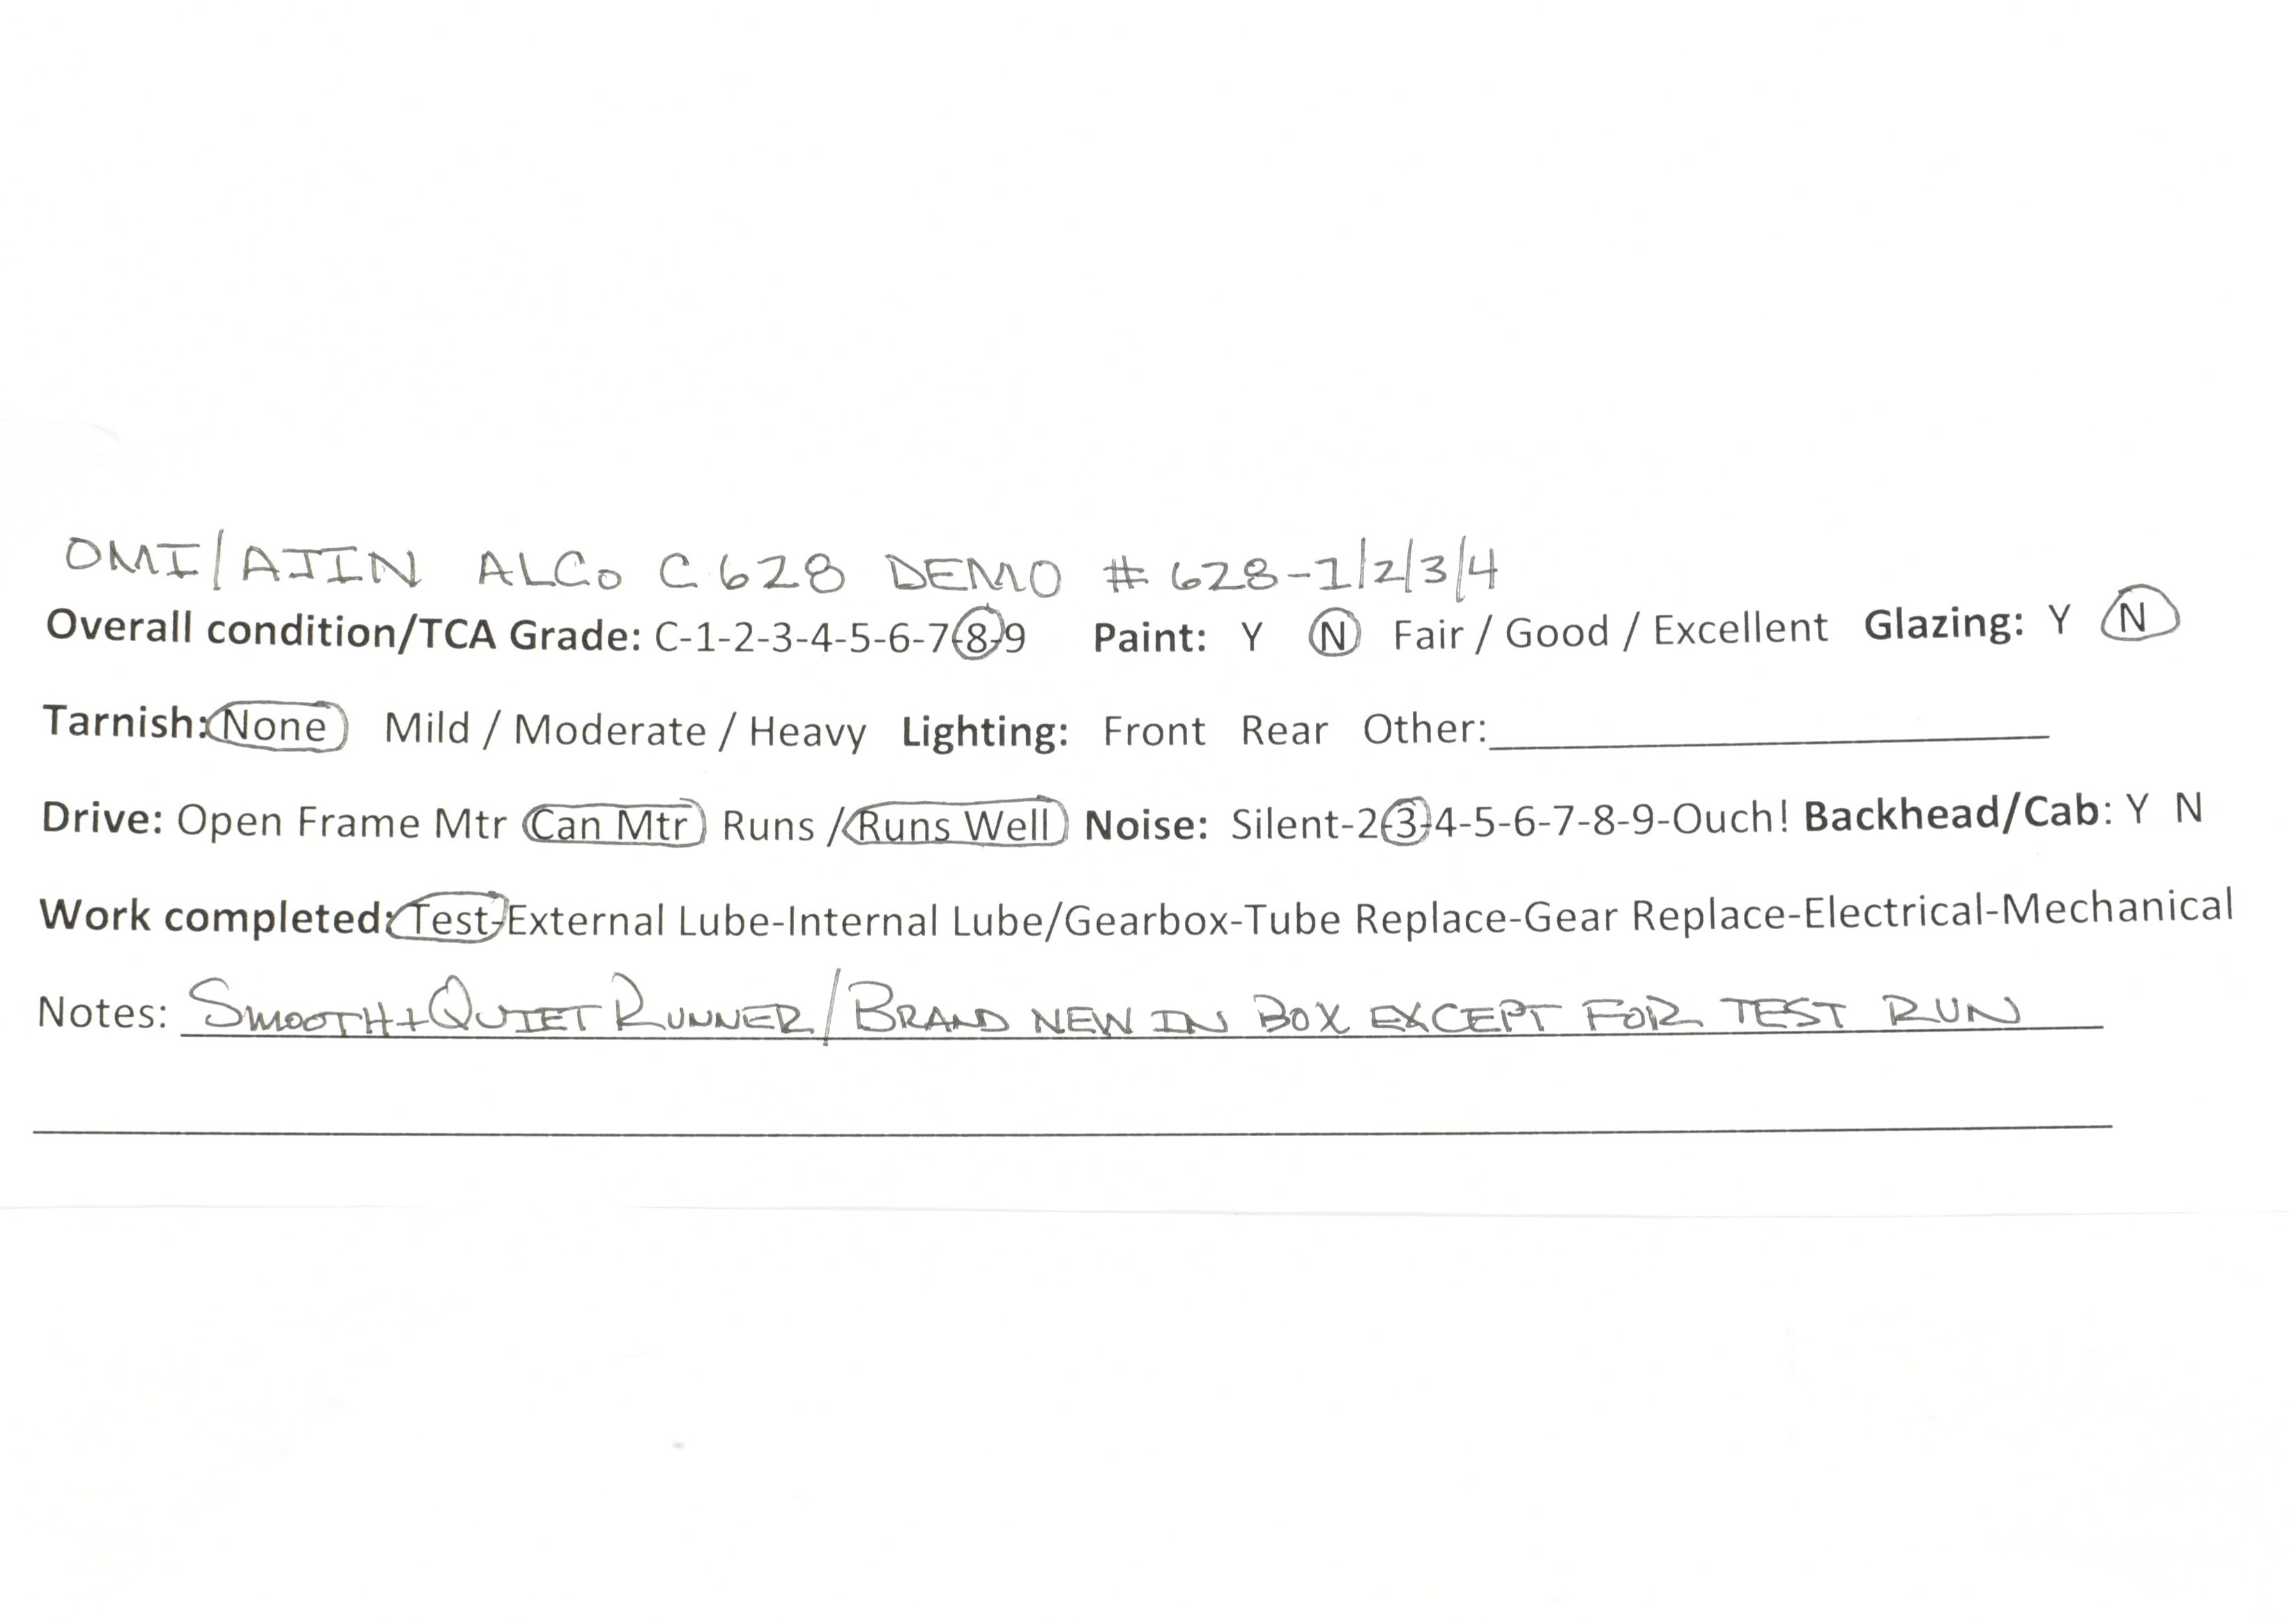 OMI/AJIN ALCo C628 DEMO # 628-1/2/3/4
Overall condition/TCA Grade: C-1-2-3-4-5-6-7-8-9 Paint: Y N Fair / Good / Excellent Glazing: Y N
Tarnish: None Mild / Moderate / Heavy Lighting: Front Rear Other:
Drive: Open Frame Mtr Can Mtr Runs / Runs Well Noise: Silent-2-3-4-5-6-7-8-9-Ouch! Backhead/Cab: Y N
Work completed: Test-External Lube-Internal Lube/Gearbox-Tube Replace-Gear Replace-Electrical-Mechanical
Notes: SMOOTH+QUIET RUNNER/BRAND NEW IN BOX EXCEPT FOR TEST RUN